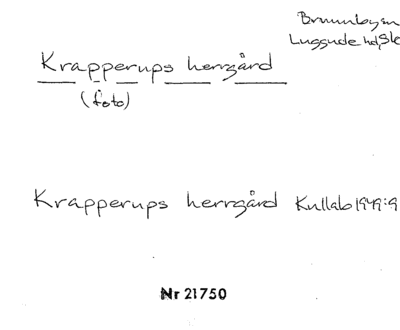 Brunnby sn
Luggude hd, Sk
Krapperups herrgård
(foto)
Krapperups herrgård Kullab 1949:9
Nr 21750